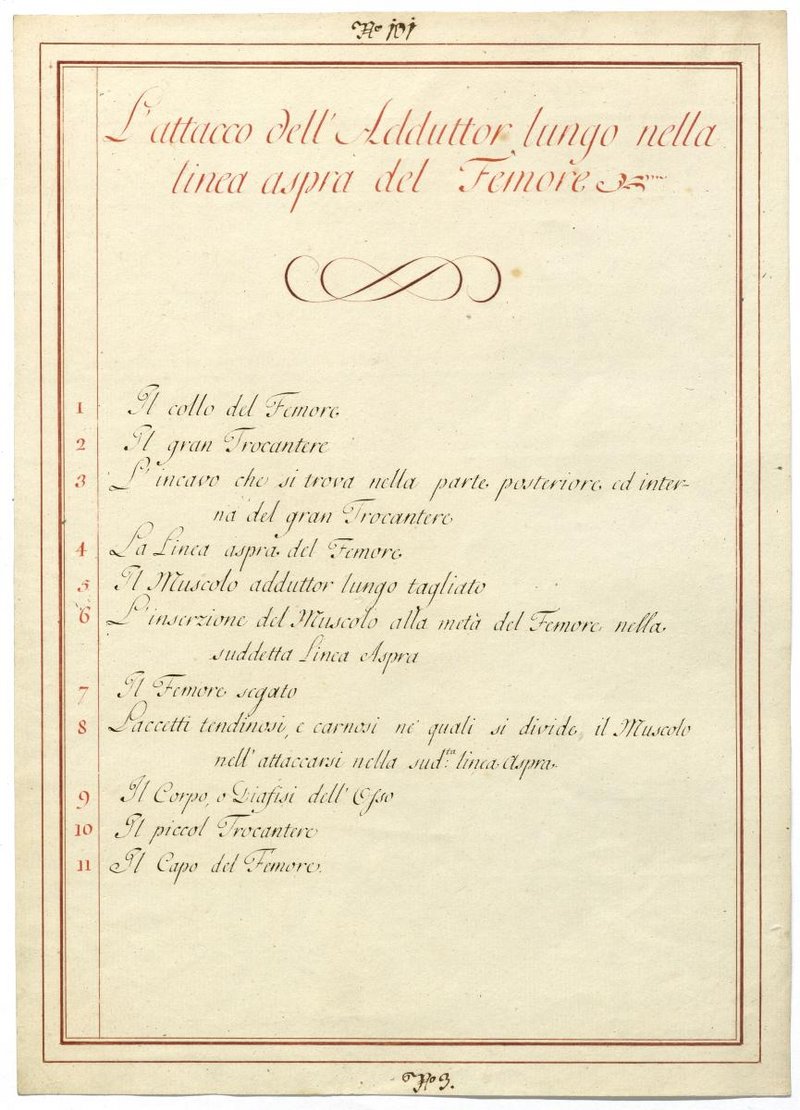 No 101
L'attacco dell'Adduttor lungo nella
linea aspra del Femore
1 Il collo del Femore
2 Il gran Trocantere
3 L'incavo che si trova nella parte posteriore ed inter-
na del gran Trocantere
4 La Linea aspra del Femore
5 Il Muscolo adduttor lungo tagliato
6 L'inserzione del Muscolo alla metà del Femore nella
suddetta Linea Aspra
7 Il Femore segato
8 Laccetti tendinosi, e carnosi ne' quali si divide il Muscolo
nell'attaccarsi nella sud.ta linea Aspra
9 Il Corpo, o Diafisi dell'Osso
10 Il piccol Trocantere
11 Il Capo del Femore.
No 3.